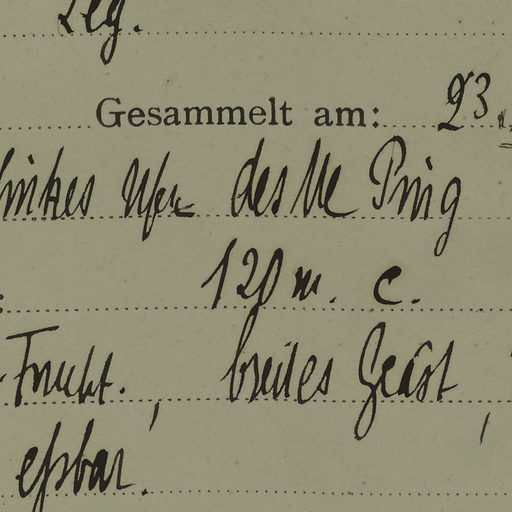 Leg.
Gesammelt am: 23.
linkes Ufer des Me Ping
120 m. c.
Frucht., breites Geäst,
eßbar.